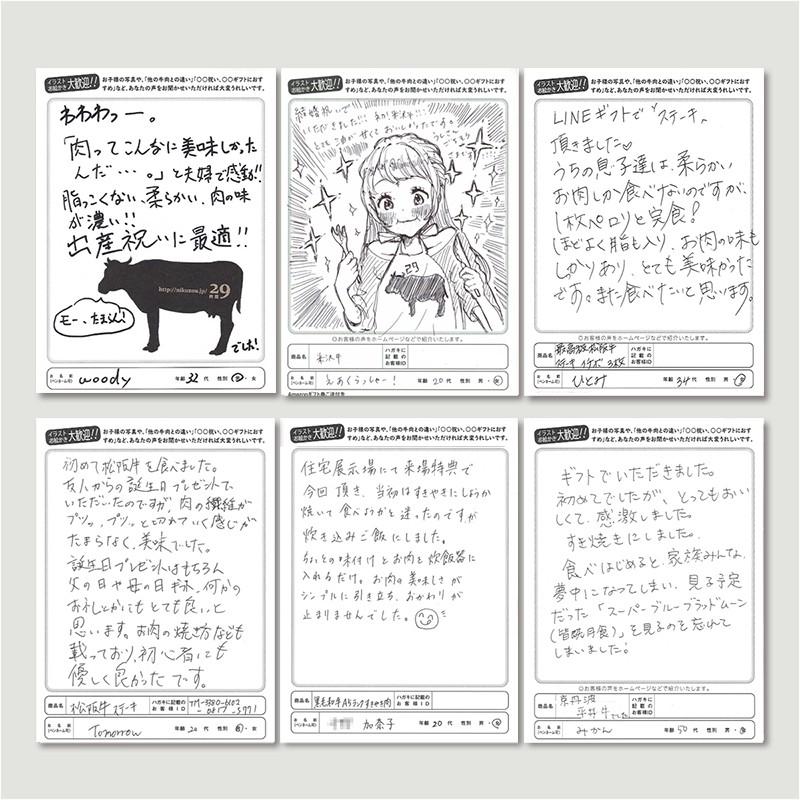 イラスト
お絵かき 大歓迎!!
お子様の写真や、「他の牛肉との違い」「〇〇祝い、〇〇ギフトにおす
すめ」など、あなたの声をお聞かせいただければ大変うれしいです。
わわわっー。
「肉ってこんなに美味しかった
んだ…。」と夫婦で感動!!
脂っこくない、柔らかい、肉の味
が濃い!!
出産祝いに最適!!
http://nikuzou.jp/ 29
モー、たまらん!
でしょ!
お名前
(ペンネーム可)
woody
年齢 32 代 性別 男・女
イラスト
お絵かき 大歓迎!!
お子様の写真や、「他の牛肉との違い」「〇〇祝い、〇〇ギフトにおす
すめ」など、あなたの声をお聞かせいただければ大変うれしいです。
結婚祝いで
いただきました!!!
とても油が甘くておいしかったです。
29
◎お客様の声をホームページなどで紹介いたします。
商品名 米沢牛
ハガキに
記載の
お客様ID
お名前
(ペンネーム可)
えあくらっしゃー!
年齢 20 代 性別 男・女
イラスト
お絵かき 大歓迎!!
お子様の写真や、「他の牛肉との違い」「〇〇祝い、〇〇ギフトにおす
すめ」など、あなたの声をお聞かせいただければ大変うれしいです。
LINEギフトで"ステーキ"
頂きました♡
うちの息子達は、柔らかい
お肉しか食べないのですが、
1枚ペロリと完食!
ほどよく脂も入り、お肉の味も
しっかりあり、とても美味かった
です。また食べたいと思います。
◎お客様の声をホームページなどで紹介いたします。
商品名 最高級松阪牛
ステーキ イチボ 3枚
ハガキに
記載の
お客様ID
お名前
(ペンネーム可)
ひとみ
年齢 34 代 性別 男・女
イラスト
お絵かき 大歓迎!!
お子様の写真や、「他の牛肉との違い」「〇〇祝い、〇〇ギフトにおす
すめ」など、あなたの声をお聞かせいただければ大変うれしいです。
初めて松阪牛を食べました。
友人からの誕生日プレゼントで
いただいたのですが、肉の繊維が
プツッ、プツッと切れていく感じが
たまらなく、美味でした。
誕生日プレゼントはもちろん
父の日や母の日ギフト、何かの
お礼とかにもとても良いと
思います。お肉の焼き方なども
載っており、初心者にも
優しく良かったです。
商品名 松阪牛ステーキ
ハガキに記載の
お客様ID
お名前
(ペンネーム可)
Tomorrow
年齢 20 代 性別 男・女
イラスト
お絵かき 大歓迎!!
お子様の写真や、「他の牛肉との違い」「〇〇祝い、〇〇ギフトにおす
すめ」など、あなたの声をお聞かせいただければ大変うれしいです。
住宅展示場にて来場特典で
今回頂き、当初はすきやきにしようか
焼いて食べようかと迷ったのですが
炊き込みご飯にしました。
ちょっとの味付けとお肉を炊飯器に
入れるだけ。お肉の美味しさが
シンプルに引き立ち、おかわりが
止まりませんでした。
商品名 黒毛和牛A5ランクすきやき肉
ハガキに記載の
お客様ID
お名前
(ペンネーム可)
加奈子
年齢 20 代 性別 男・女
イラスト
お絵かき 大歓迎!!
お子様の写真や、「他の牛肉との違い」「〇〇祝い、〇〇ギフトにおす
すめ」など、あなたの声をお聞かせいただければ大変うれしいです。
ギフトでいただきました。
初めてでしたが、とってもおいし
しくて、感激しました。
すき焼きにしました。
食べはじめると、家族みんな、
夢中になってしまい、見る予定
だった「スーパーブルーブラッドムーン
(皆既月食)」を見るのを忘れて
しまいました!
◎お客様の声をホームページなどで紹介いたします。
商品名 京丹波
平井牛でした
ハガキに
記載の
お客様ID
お名前
(ペンネーム可)
みかん
年齢 50 代 性別 男・女